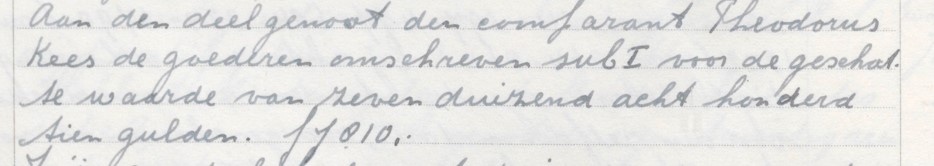 Aan den deelgenoot den comparant Theodorus
Kees de goederen omschreven sub I voor de geschat-
te waarde van zeven duizend acht honderd
tien gulden. f 7810,-